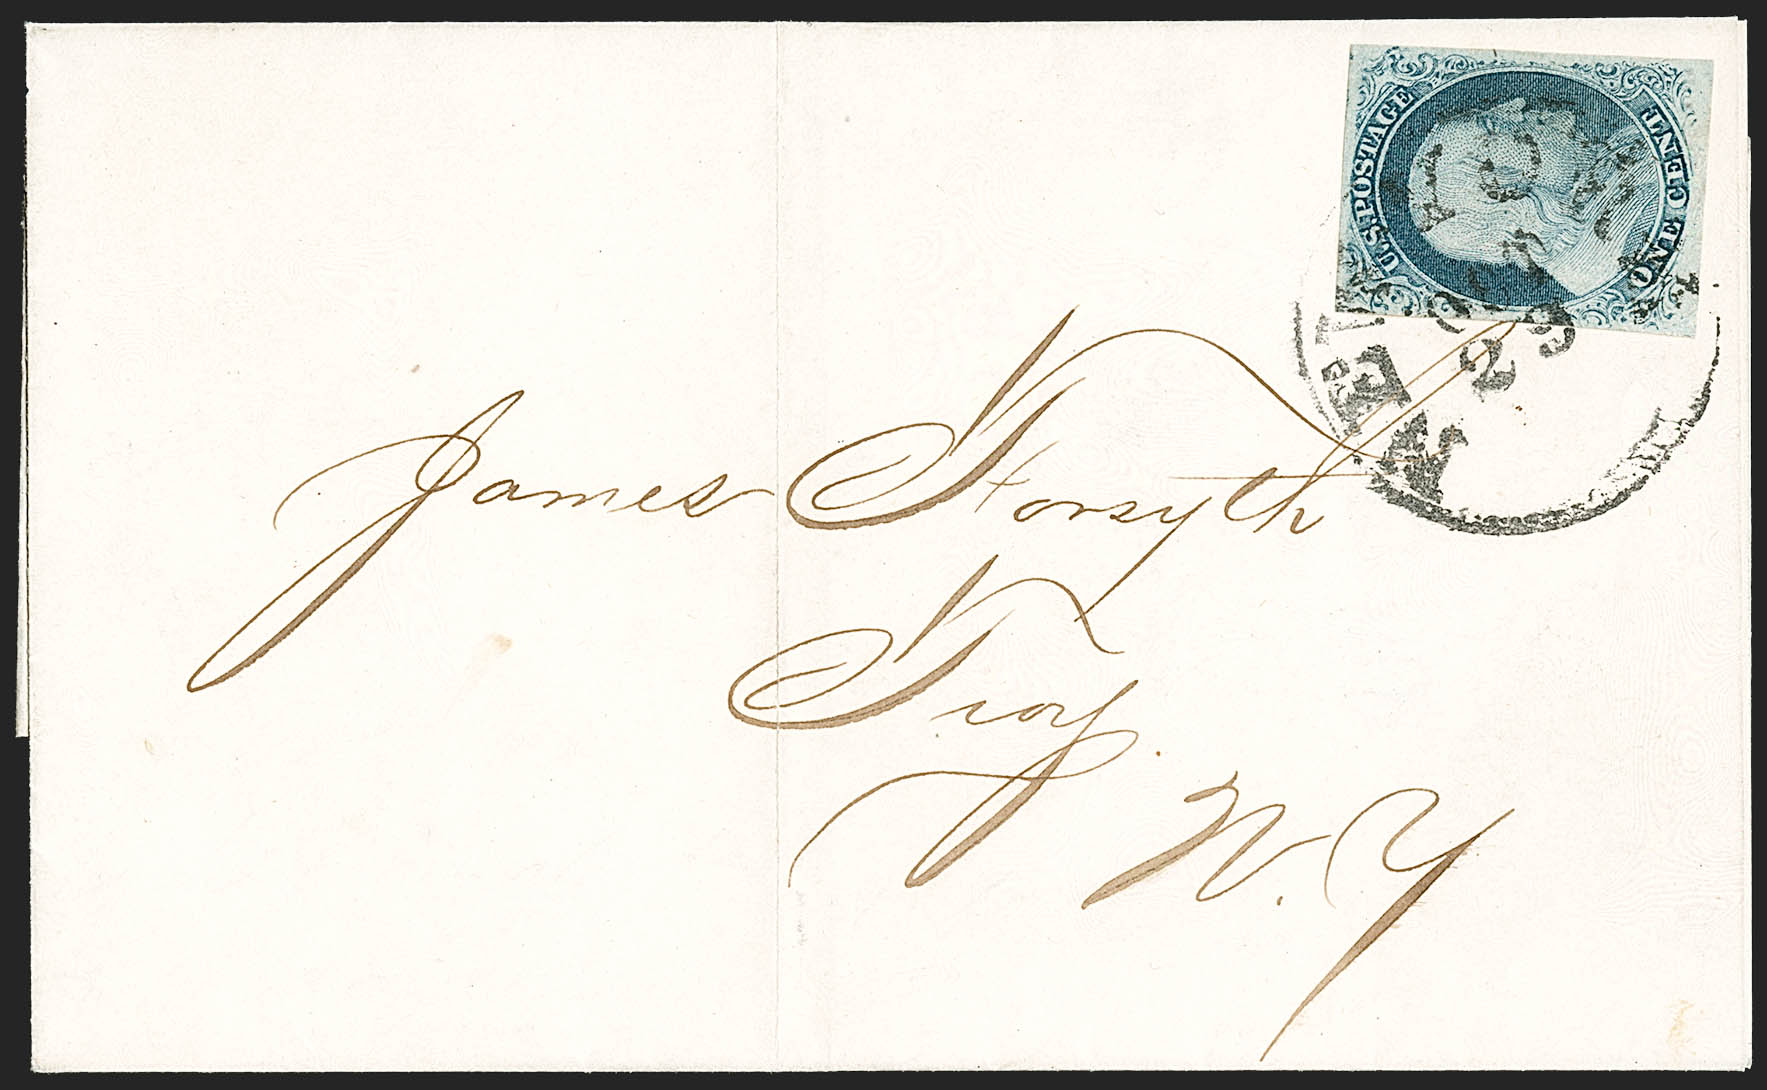 U.S. POSTAGE
ONE CENT
NEW
29
James Forsyth
Troy
N.Y